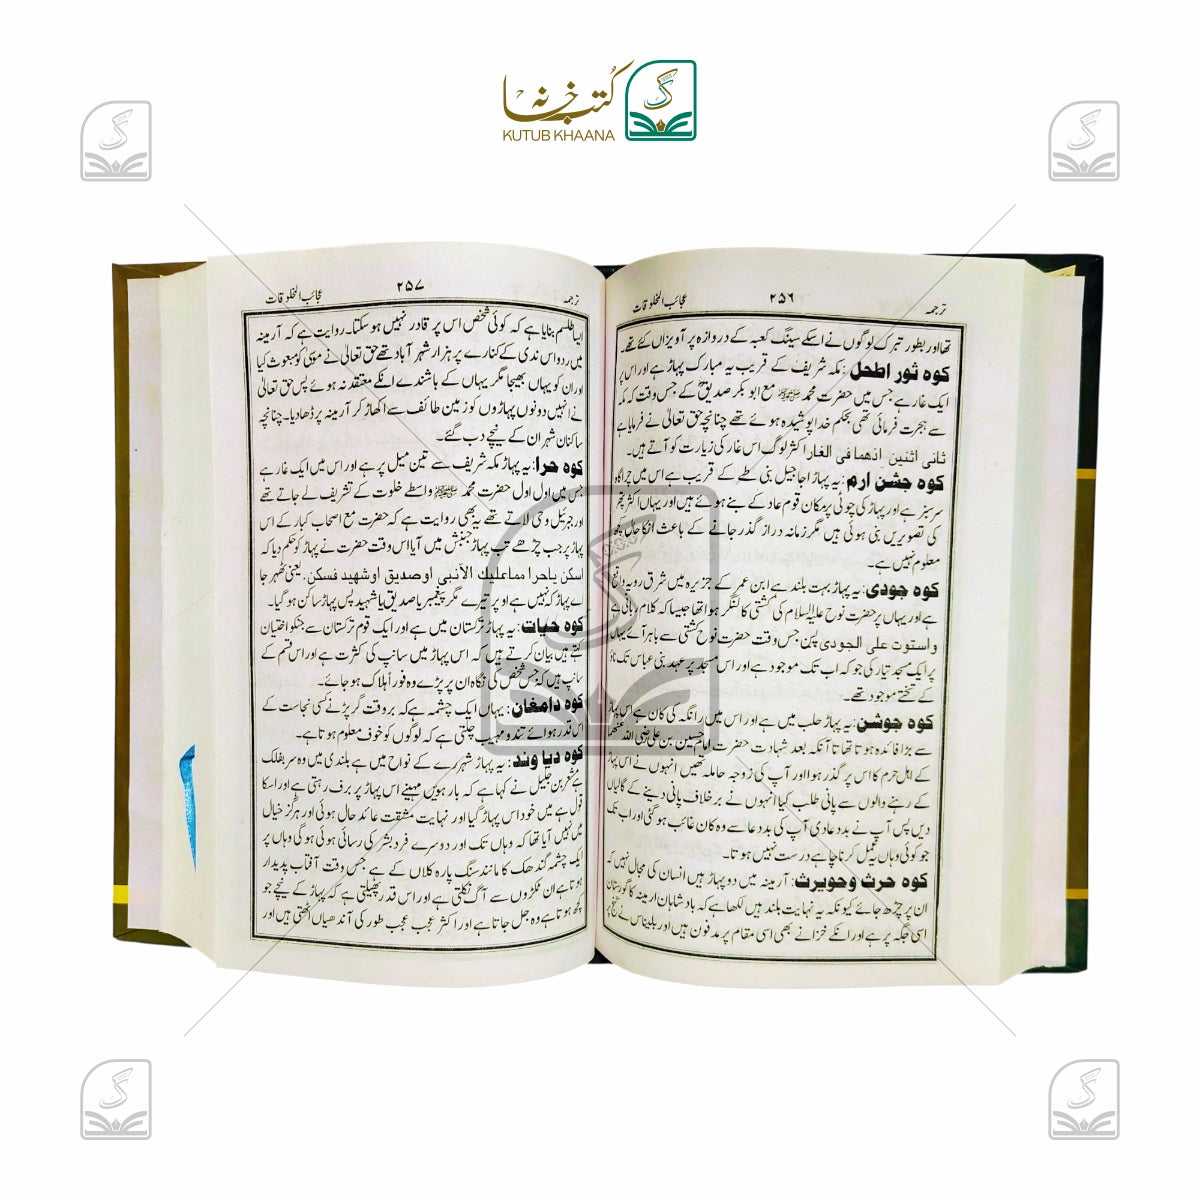 کتب خانہ
KUTUB KHAANA
ترجمہ ۲۵۶ عجائب المخلوقات
تھا اور بطور تبرک لوگوں نے اسکے سینگ کعبہ کے دروازہ پر آویزاں کئے تھے۔
کوہ ثور اطحل: مکہ شریف کے قریب یہ مبارک پہاڑ ہے اور اس پر
ایک غار ہے جس میں حضرت محمد ﷺ مع ابو بکر صدیقؓ کے جس وقت کہ مکہ
سے ہجرت فرمائی تھی بحکم خدا پوشیدہ ہوئے تھے چنانچہ حق تعالیٰ نے فرمایا ہے
ثانی اثنین اذھما فی الغار اکثر لوگ اس غار کی زیارت کو آتے ہیں۔
کوہ جشن ارم: یہ پہاڑ اجا جبیل بنی طے کے قریب ہے اس میں چراگاہ
سرسبز ہے اور پہاڑ کی چوٹی پر مکان قوم عاد کے بنے ہوئے ہیں اور یہاں اکثر پتھر
کی تصویریں بنی ہوئی ہیں مگر زمانہ دراز گذر جانے کے باعث انکا حال کچھ
معلوم نہیں ہے۔
کوہ جودی: یہ پہاڑ بہت بلند ہے ابن عمر کے جزیرہ میں شرق رویہ واقع
ہے اور یہاں پر حضرت نوح علیہ السلام کی کشتی کا لنگر ہوا تھا جیسا کہ کلام ربانی ہے
واستوت علی الجودی پس جس وقت حضرت نوح کشتی سے باہر آئے یہاں
پر ایک مسجد تیار کی جو کہ اب تک موجود ہے اور اس مسجد پر عہد بنی عباس تک ناؤ
کے تختے موجود تھے۔
کوہ جوشن: یہ پہاڑ حلب میں ہے اور اس میں رانگہ کی کان ہے اس پہاڑ
سے بڑا فائدہ ہوتا تھا تا آنکہ بعد شہادت حضرت امام حسین بن علی رضی اللہ عنھما
کے اہل حرم کا اس پر گذر ہوا اور آپ کی زوجہ حاملہ تھیں انہوں نے اس پہاڑ
کے رہنے والوں سے پانی طلب کیا انہوں نے برخلاف پانی دینے کے گالیاں
دیں پس آپ نے بددعا دی آپ کی بددعا سے وہ کان غائب ہو گئی اور اب تک
جو کوئی وہاں پر عمل کرنا چاہے درست نہیں ہوتا۔
کوہ حرث وحویرث: آرمینہ میں دو پہاڑ ہیں انسان کی مجال نہیں کہ
ان پر چڑھ جائے کیونکہ یہ نہایت بلند ہیں لکھا ہے کہ بادشاہان ارمینہ کا گورستان
اسی جگہ پر ہے اور انکے خزانے بھی اسی مقام پر مدفون ہیں اور بلیناس نے گنج پر
ترجمہ ۲۵۷ عجائب المخلوقات
ایسا طلسم بنایا ہے کہ کوئی شخص اس پر قادر نہیں ہو سکتا۔ روایت ہے کہ آرمینہ
میں رود اس ندی کے کنارے پر ہزار شہر آباد تھے حق تعالیٰ نے موسیٰ کو مبعوث کیا
اور ان کو یہاں بھیجا مگر یہاں کے باشندے انکے معتقد نہ ہوئے پس حق تعالیٰ
نے انہیں دونوں پہاڑوں کو زمین طائف سے اکھاڑ کر آرمینہ پر ڈھا دیا۔ چنانچہ
ساکنان شہر ان کے نیچے دب گئے۔
کوہ حرا: یہ پہاڑ مکہ شریف سے تین میل پر ہے اور اس میں ایک غار ہے
جس میں اول اول حضرت محمد ﷺ واسطے خلوت کے تشریف لے جاتے تھے
اور جبرئیل وحی لاتے تھے یہ بھی روایت ہے کہ حضرت مع اصحاب کبار کے اس
پہاڑ پر جب چڑھے تب پہاڑ جنبش میں آیا اس وقت حضرت نے پہاڑ کو حکم دیا کہ
اسکن یاحرا مماعلیك الآنبی اوصدیق اوشھید فسکن۔ یعنی ٹھہر جا
اے پہاڑ کہ نہیں ہے اوپر تیرے مگر پیغمبر یا صدیق یا شہید پس پہاڑ ساکن ہو گیا۔
کوہ حیات: یہ پہاڑ ترکستان میں ہے اور ایک قوم ترکستان سے جنکو اختیان
کہتے ہیں بیان کرتے ہیں کہ اس پہاڑ میں سانپ کی کثرت ہے اور اس قسم کے
سانپ ہیں کہ جس شخص کی نگاہ ان پر پڑے وہ فوراً ہلاک ہو جائے۔
کوہ دامغان: یہاں ایک چشمہ ہے کہ بروقت گر پڑنے کسی نجاست کے
اس قدر ہوائے تند و مہیب چلتی ہے کہ لوگوں کو خوف معلوم ہوتا ہے۔
کوہ دیا وند: یہ پہاڑ شہر رے کے نواح میں ہے بلندی میں وہ سر بفلک
ہے مشعر بن جلیل نے کہا ہے کہ بارہویں مہینے اس پہاڑ پر برف رہتی ہے اور اسکا
قول ہے میں خود اس پہاڑ گیا اور نہایت مشقت عائد حال ہوئی اور ہرگز خیال
میں نہیں آیا تھا کہ وہاں تک اور دوسرے فرد بشر کی رسائی ہوئی ہو گی وہاں پر
ایک چشمہ گندھک کا مانند سنگ پارہ کلاں کے ہے جس وقت آفتاب پدیدار
ہوتا ہے ان ٹکڑوں سے آگ نکلتی ہے اور اس قدر پھیلتی ہے کہ پہاڑ کے نیچے جو
کچھ ہوتا ہے وہ جل جاتا ہے اور اکثر عجب عجب طور کی آندھیاں اٹھتی ہیں اور